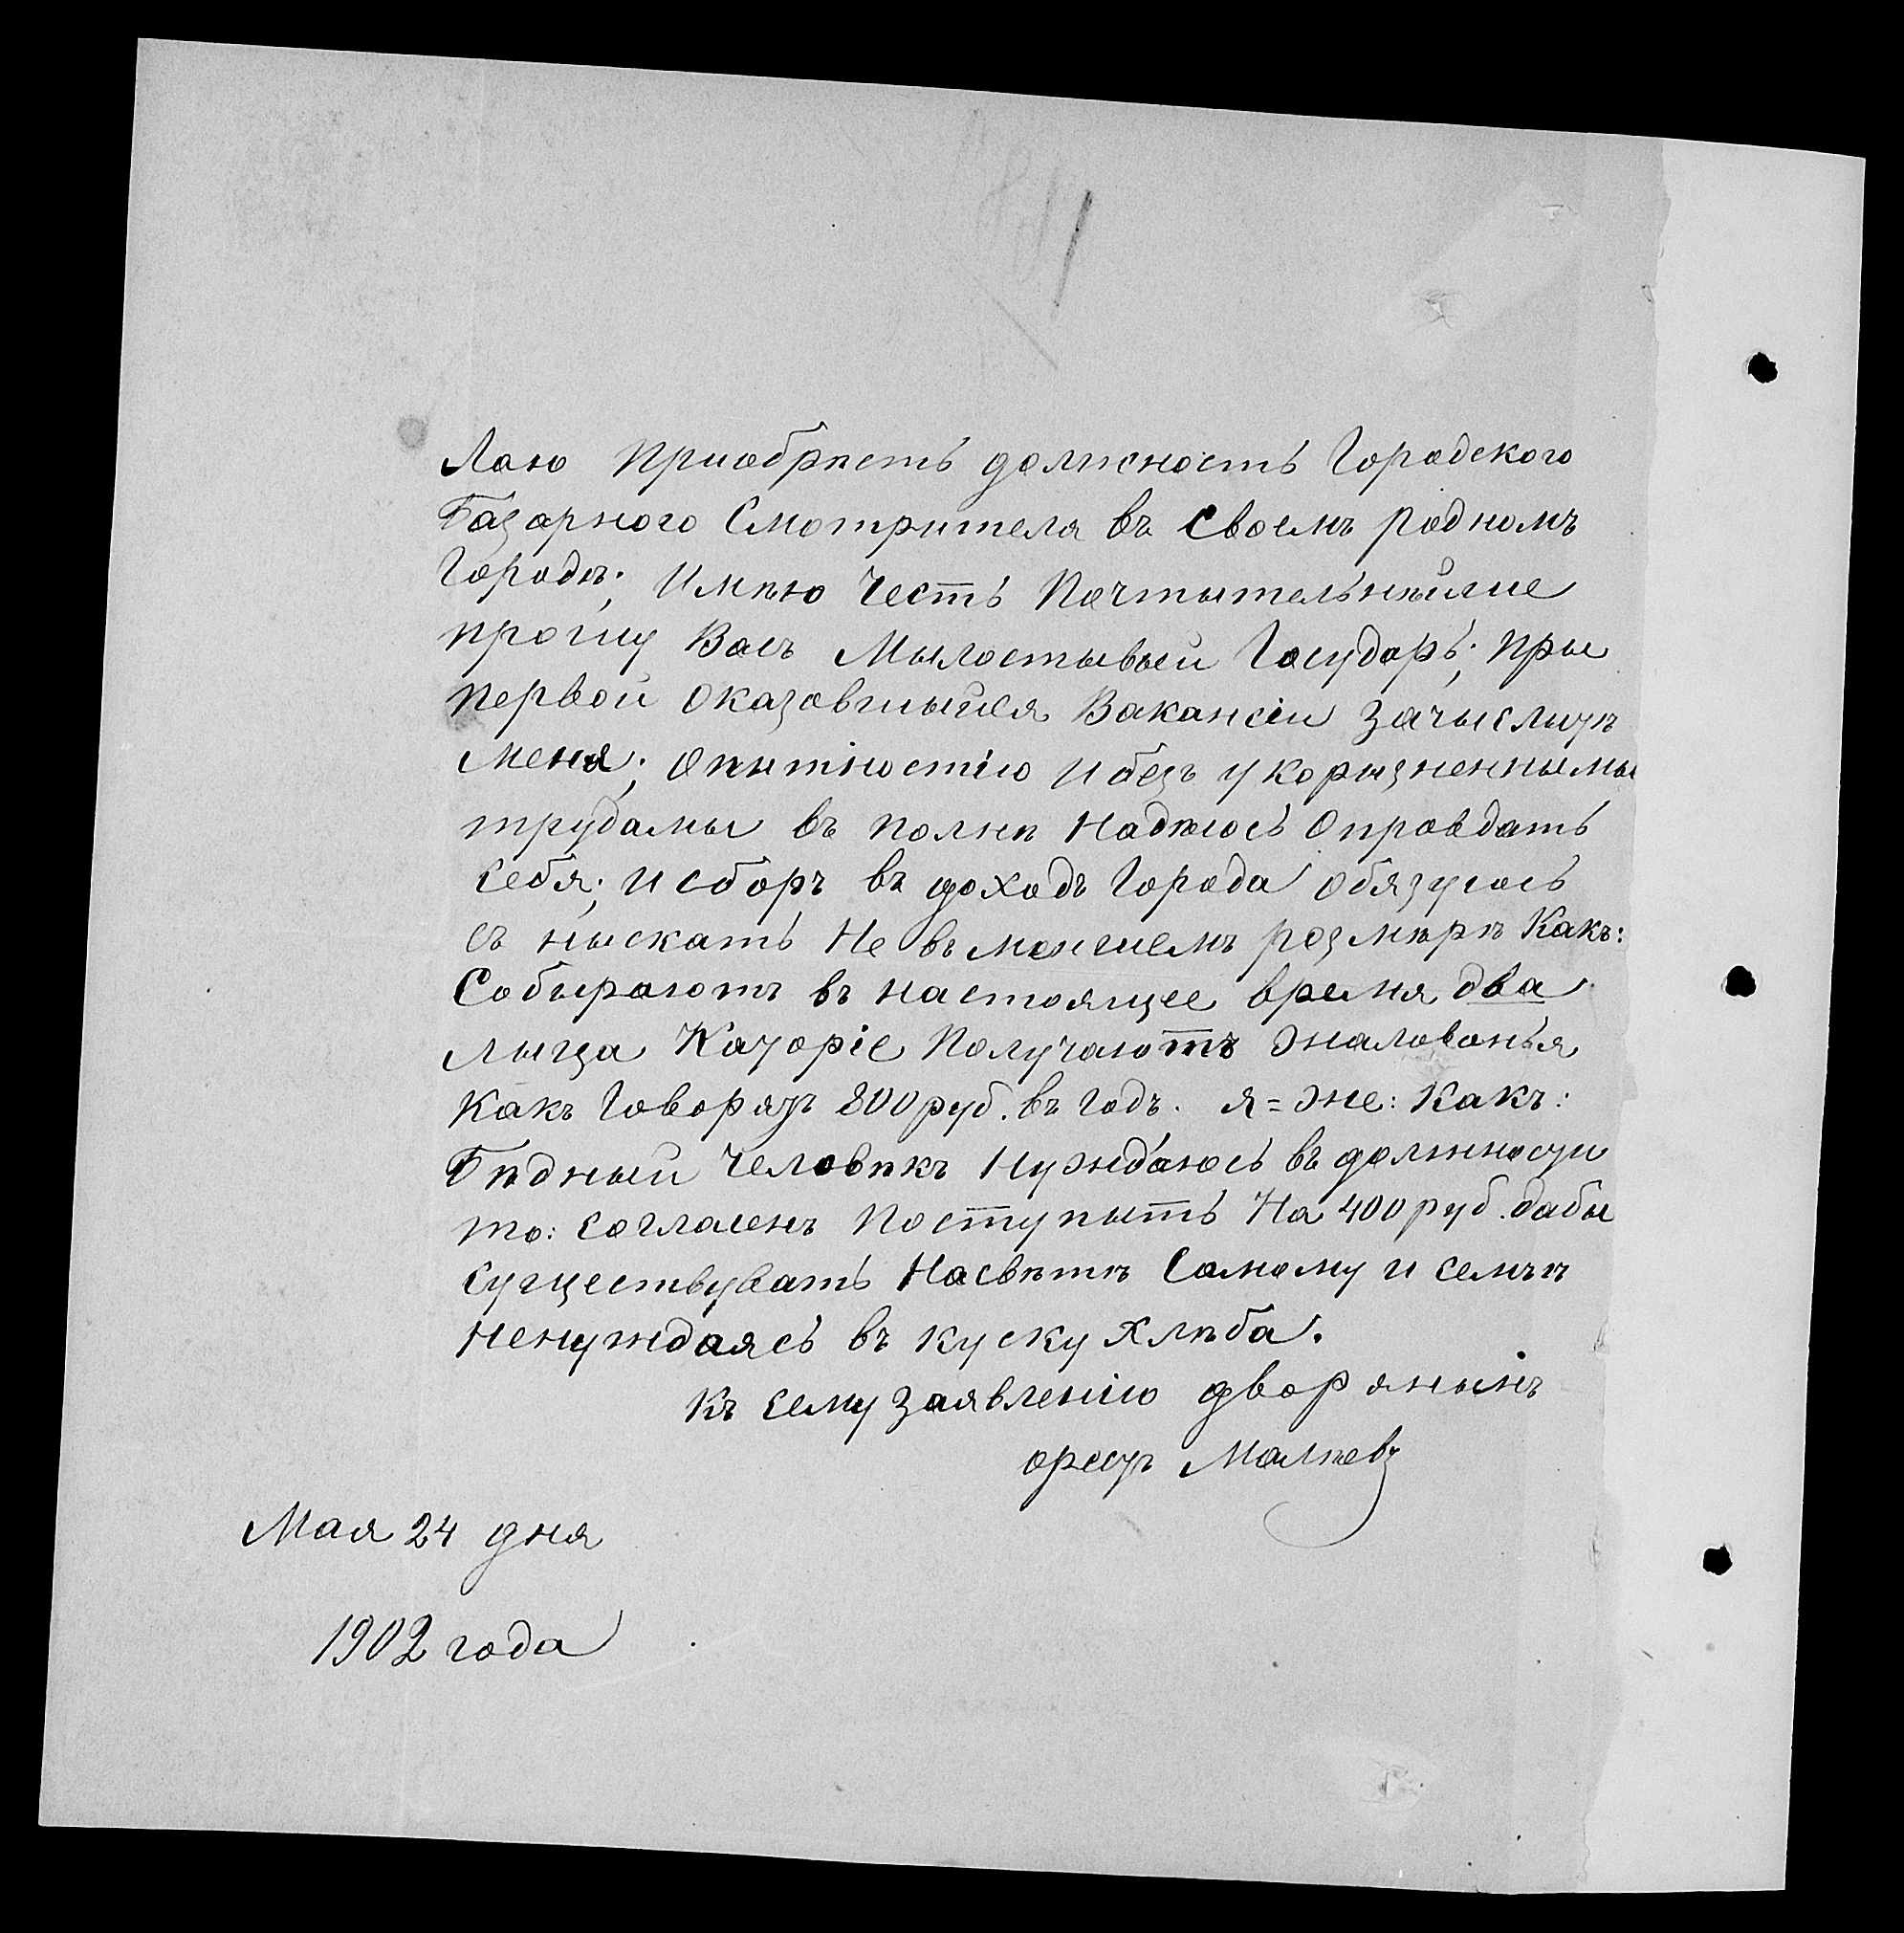 лаю приобрѣсть должность Городского
Базарного Смотрителя въ Своемъ родномъ
Городѣ; Имѣю Честь Почтытельнѣйше
прошу Васъ Мылостывый Государь; пры
первой Оказавшыйся Вакансіи Зачыслить
меня; Опытностію и безъ укорызненнымы
трудамы въ полнѣ Надѣюсь Оправдать
себя; и сборъ въ доходъ Города обязуюсь
съ ныскать Не въ меншемъ розмѣрѣ Какъ:
Собырають въ настоящее время два
лыца Каторіе Получаютъ Жалованья
Какъ Говорятъ 800 руб. въ годъ. я = же: Какъ:
Бѣдный Человѣкъ Нуждаюсь въ должности
то: согласенъ Поступыть На 400 руб. дабы
существувать Насвѣтѣ Самому и семъѣ
ненуждаясь въ куску хлѣба.
Къ сему Заявленію дворянынъ
орестъ Малѣевъ
Мая 24 дня
1902 года